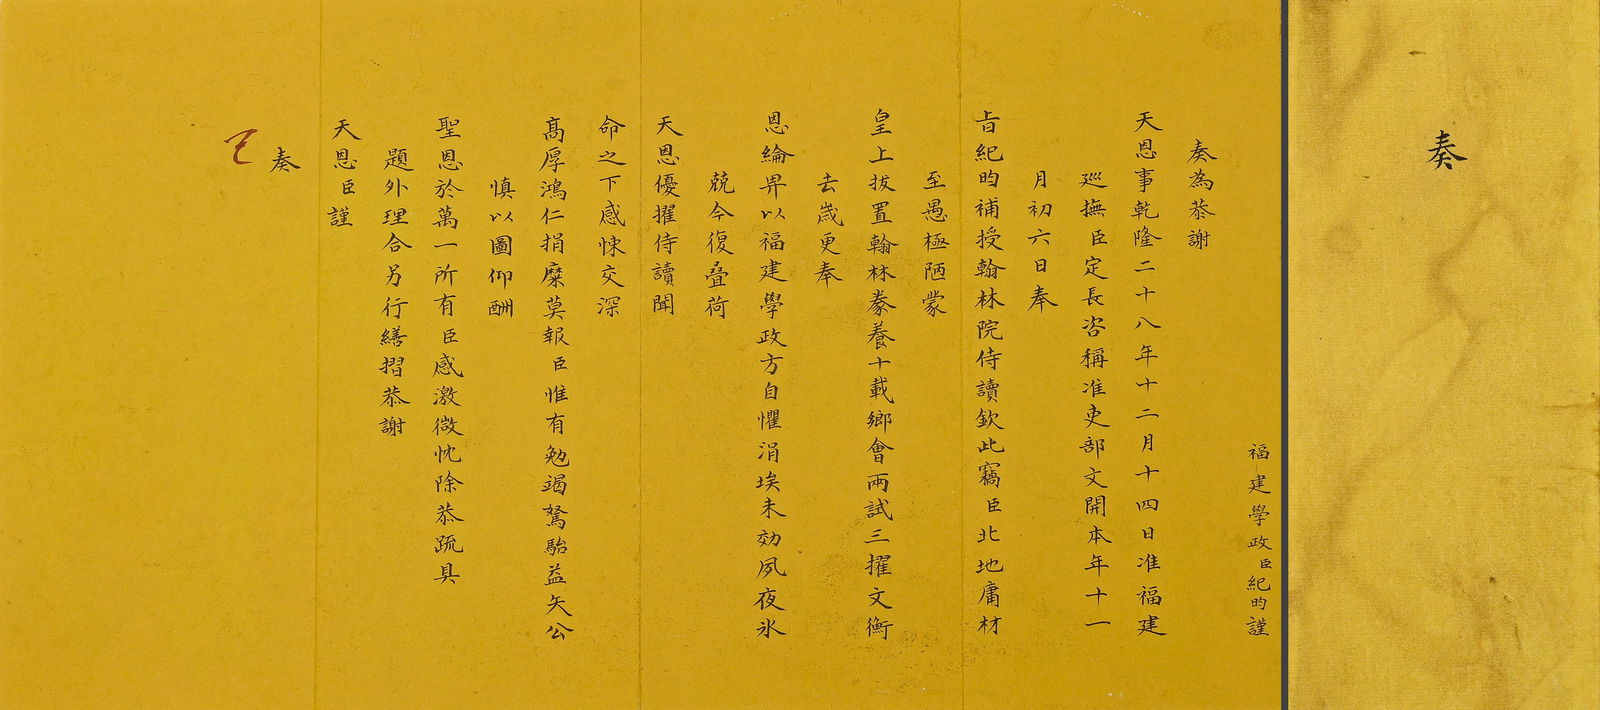 奏
福建學政臣紀昀謹
奏為恭謝
天恩事乾隆二十八年十二月十四日准福建
廵撫臣定長咨稱准吏部文開本年十一
月初六日奉
旨紀昀補授翰林院侍讀欽此竊臣北地庸材
至愚極陋蒙
皇上拔置翰林豢養十載鄉會兩試三擢文衡
去歲更奉
恩綸畀以福建學政方自懼涓埃未効夙夜氷
兢今復叠荷
天恩優擢侍讀聞
命之下感悚交深
髙厚鴻仁捐糜莫報臣惟有勉竭駑駘益矢公
慎以圖仰酬
聖恩於萬一所有臣感激微忱除恭疏具
題外理合另行繕摺恭謝
天恩臣謹
奏